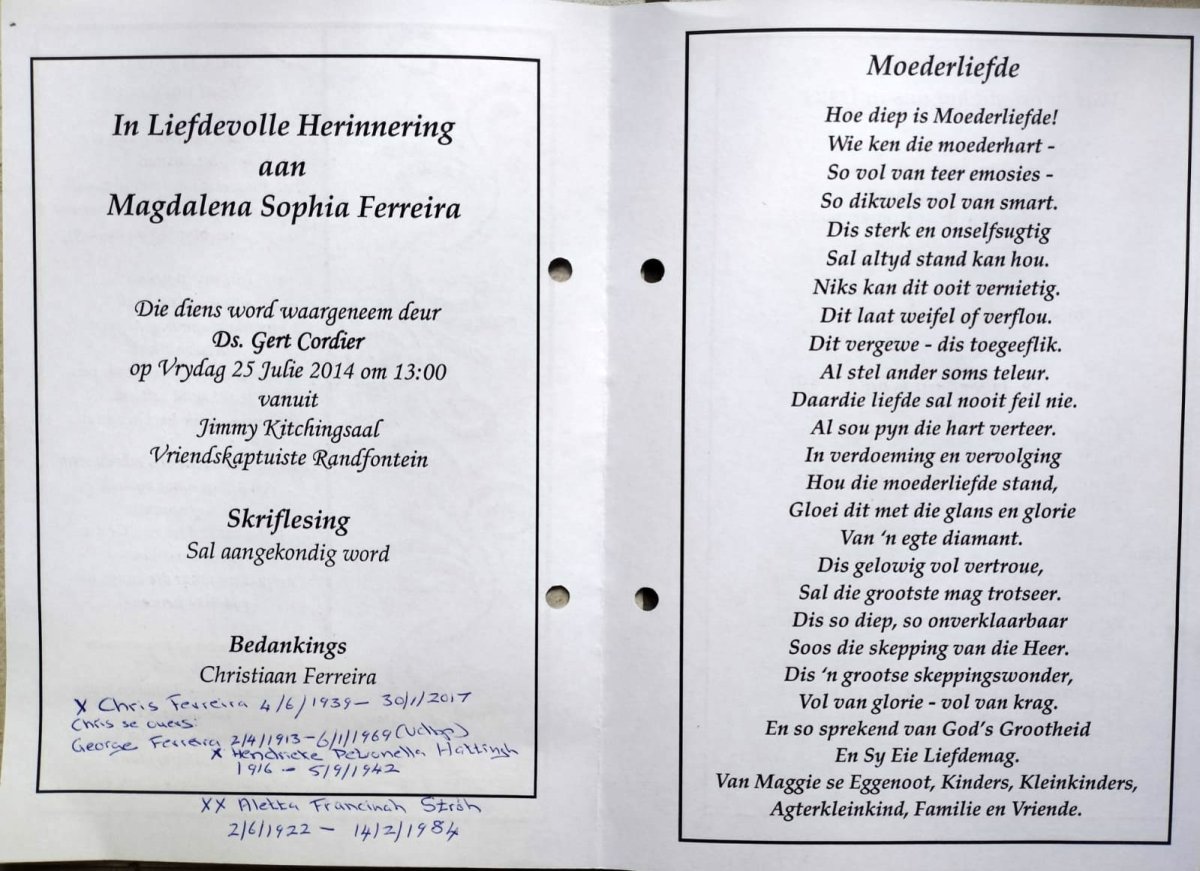 In Liefdevolle Herinnering
aan
Magdalena Sophia Ferreira
Die diens word waargeneem deur
Ds. Gert Cordier
op Vrydag 25 Julie 2014 om 13:00
vanuit
Jimmy Kitchingsaal
Vriendskaptuiste Randfontein
Skriflesing
Sal aangekondig word
Bedankings
Christiaan Ferreira
X Chris Ferreira 4/6/1939 - 30/1/2017
Chris se ouers:
George Ferreira 2/4/1913 - 6/1/1969
X Hendrieke Petronella Hattingh
1916 - 5/9/1942
XX Aletta Francinah Ströh
2/6/1922 - 14/2/1984
Moederliefde
Hoe diep is Moederliefde!
Wie ken die moederhart -
So vol van teer emosies -
So dikwels vol van smart.
Dis sterk en onselfsugtig
Sal altyd stand kan hou.
Niks kan dit ooit vernietig.
Dit laat weifel of verflou.
Dit vergewe - dis toegeeflik.
Al stel ander soms teleur.
Daardie liefde sal nooit feil nie.
Al sou pyn die hart verteer.
In verdoeming en vervolging
Hou die moederliefde stand,
Gloei dit met die glans en glorie
Van ‘n egte diamant.
Dis gelowig vol vertroue,
Sal die grootste mag trotseer.
Dis so diep, so onverklaarbaar
Soos die skepping van die Heer.
Dis ‘n grootse skeppingswonder,
Vol van glorie - vol van krag.
En so sprekend van God's Grootheid
En Sy Eie Liefdemag.
Van Maggie se Eggenoot, Kinders, Kleinkinders,
Agterkleinkind, Familie en Vriende.